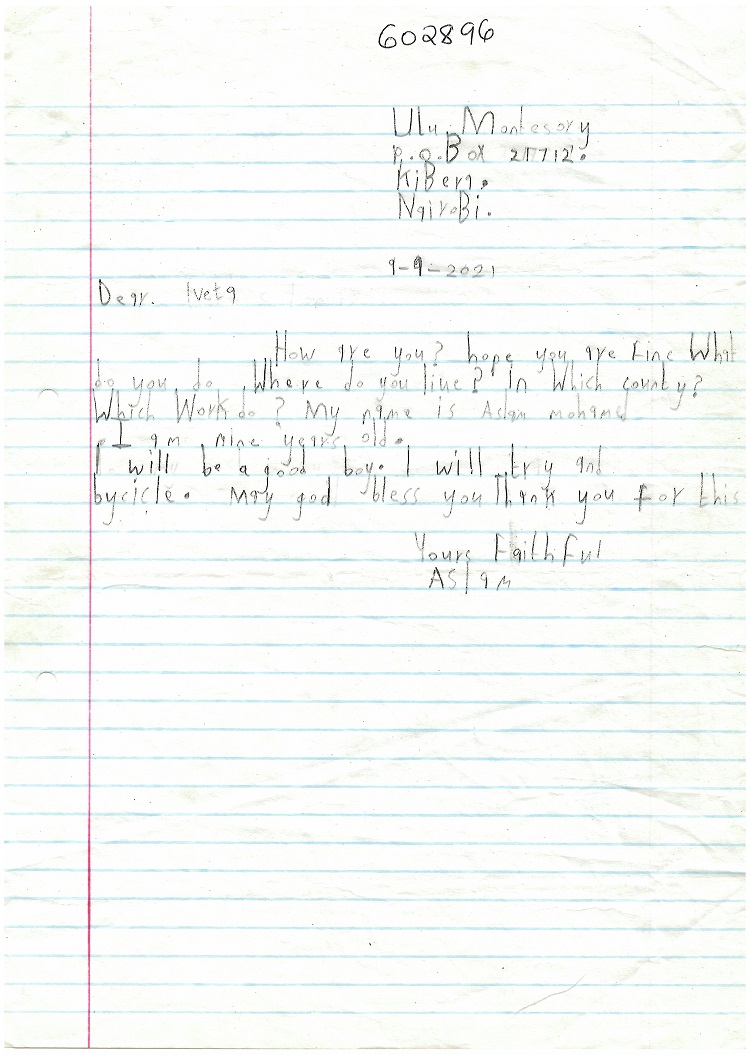 602896
Ulu. Montesory
P.O.Box 21712.
KiBera.
NairoBi.
9-9-2021
Dear. Iveta
How are you? hope you are Fine What
do you do Where do you live? In Which county?
Which Work do? My name is Aslam mohamed
I am nine years old.
I will be a good boy. I will try and
bycicle. May god bless you Thank you For this
Yours FaithFul
ASlam